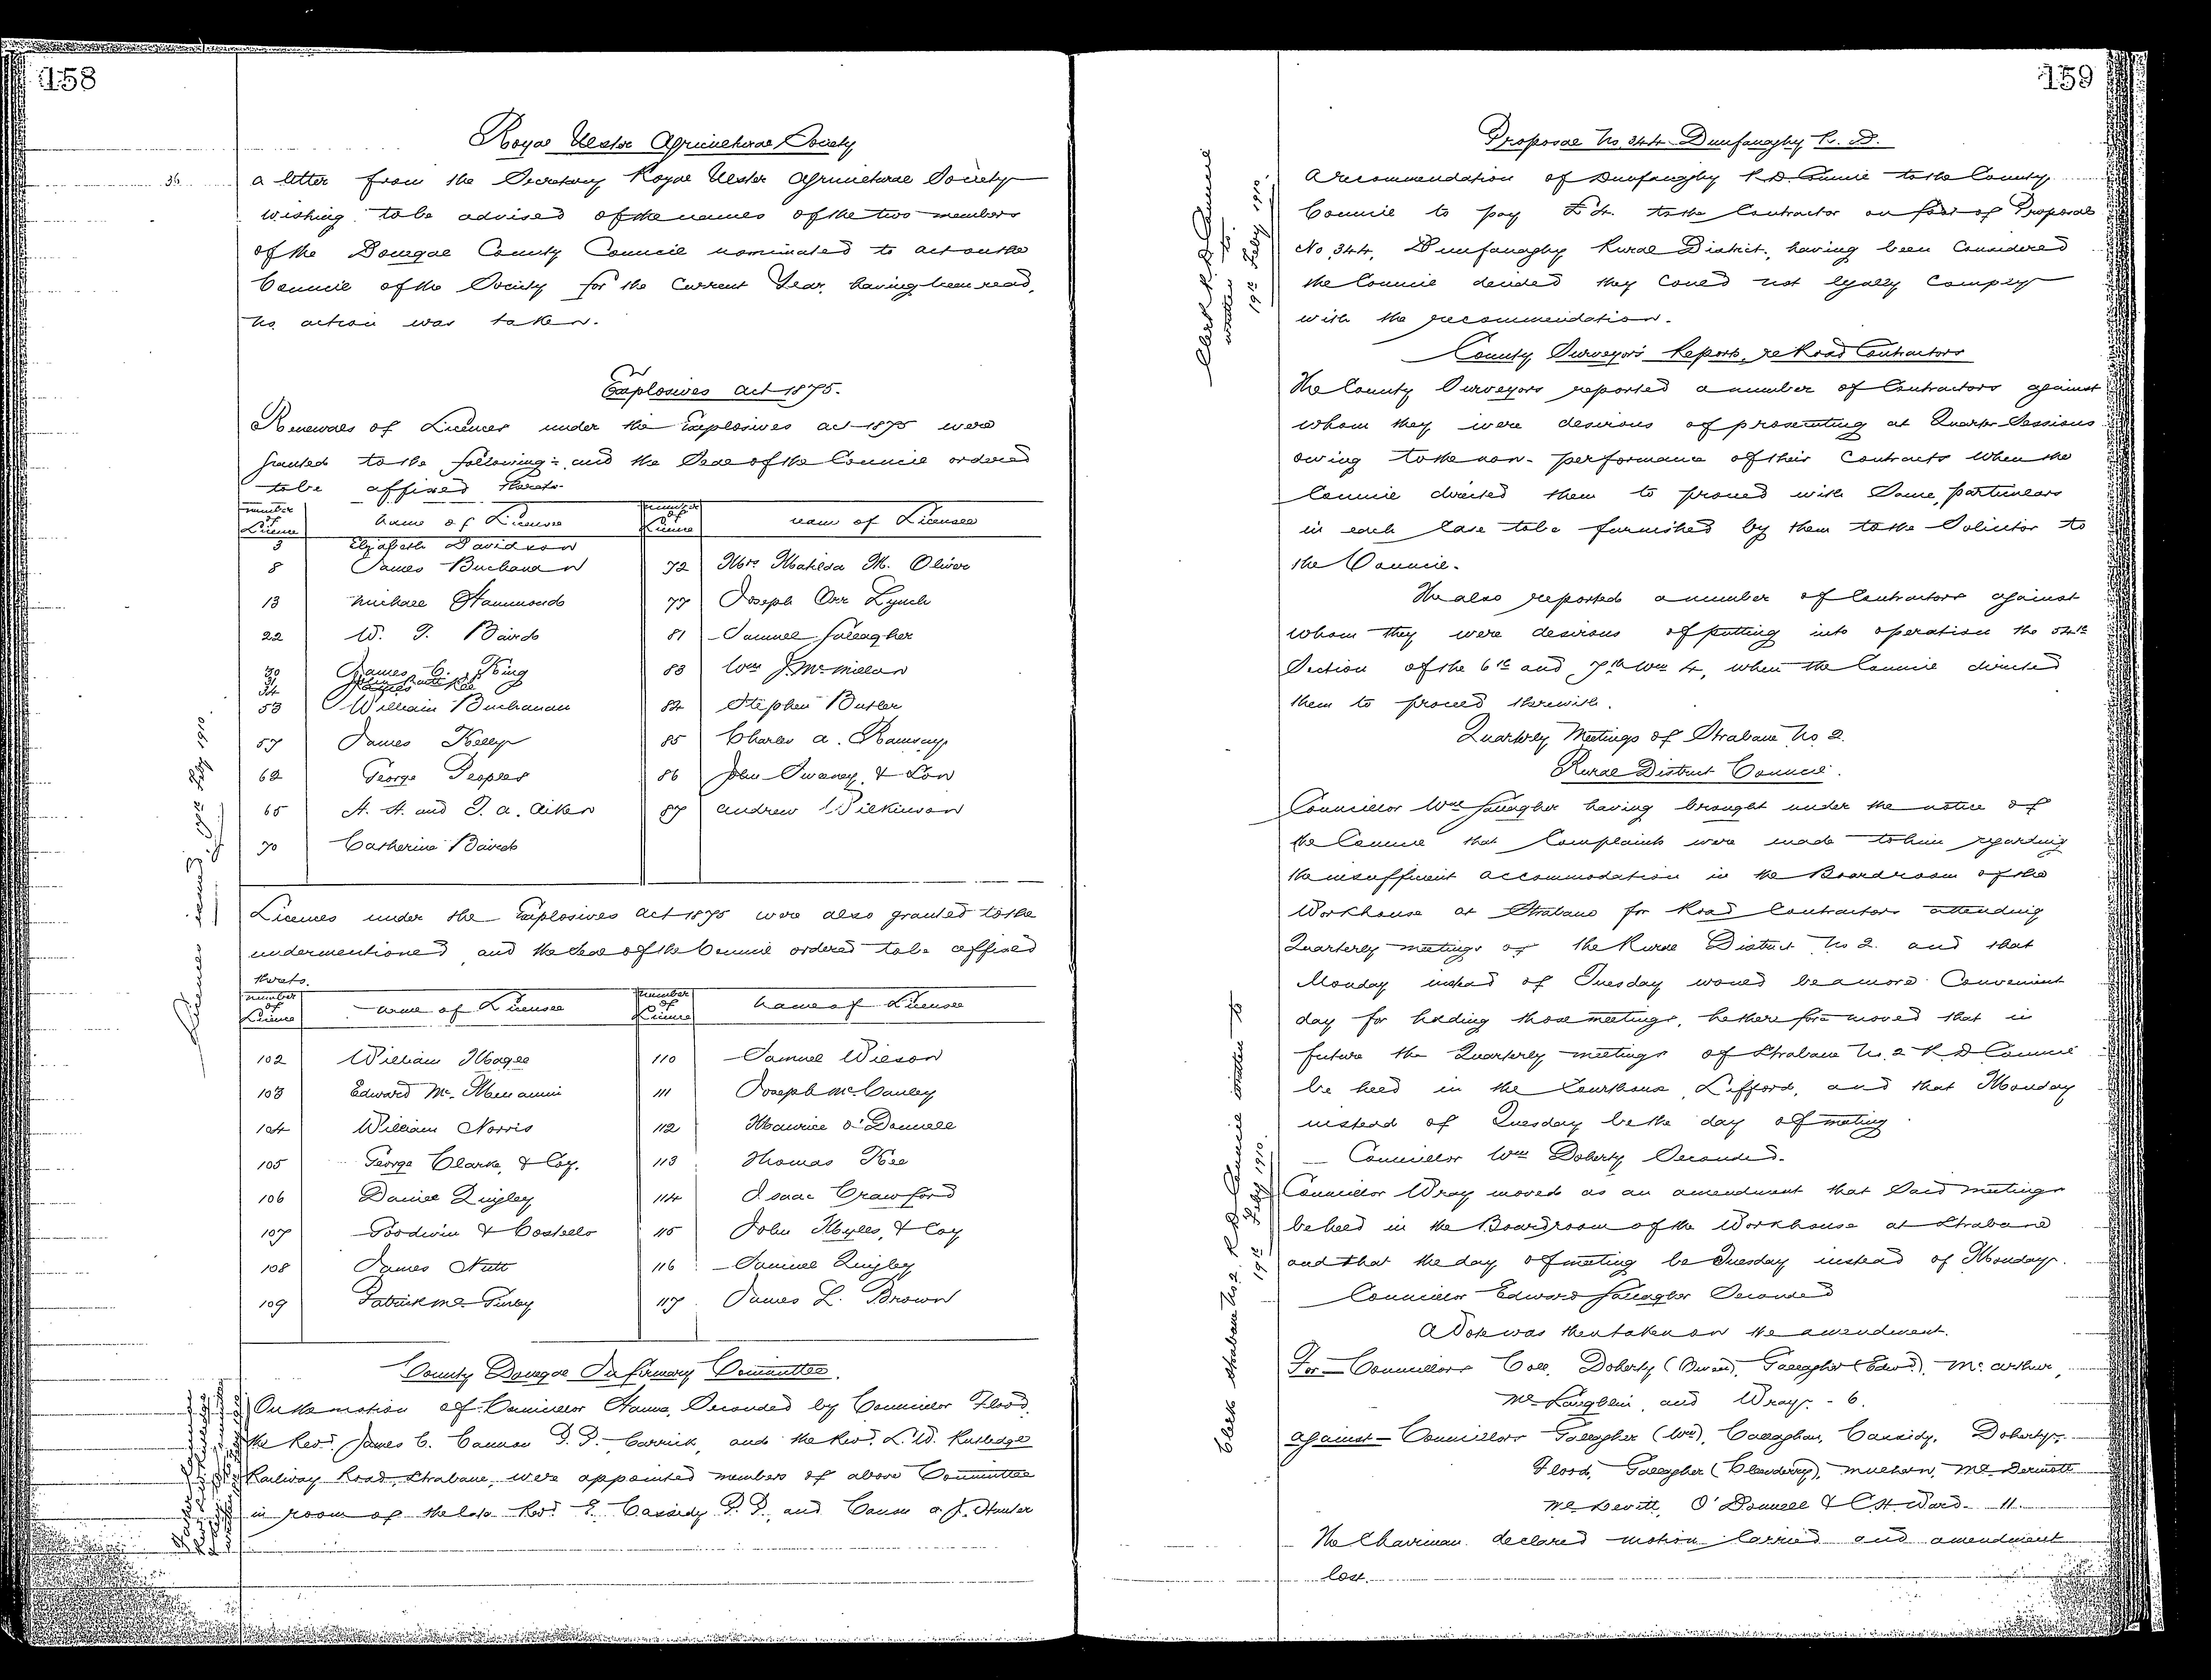 158
Royal Ulster Agricultural Society
36
a letter from the Secretary Royal Ulster Agricultural Society
wishing to be advised of the names of the two members
of the Donegal County Council nominated to act on the
Council of the Society for the Current Year, having been read,
no action was taken.
Explosives Act 1875.
Renewals of Licences under the Explosives Act 1875 were
granted to the following:- and the Seal of the Council ordered
to be affixed thereto-
number of Licence
name of Licensee
number of Licence
name of Licensee
3 Elizabeth Davidson
8 James Buchanan 72 Mrs Matilda M. Oliver
13 Michael Hammond 77 Joseph Orr Lynch
22 W. J. Baird 81 Samuel Gallagher
30 James C. King 83 Wm J. McMillan
31
34
53 William Buchanan 84 Stephen Butler
57 James Kelly 85 Charles A. Ramsay
62 George Peoples 86 John Sweeney & Son
65 H. H. and J. A. Aiken 87 Andrew Wilkinson
70 Catherine Baird
Licences under the Explosives Act 1875 were also granted to the
undermentioned, and the Seal of the Council ordered to be affixed
thereto.
number of Licence
name of Licensee
number of Licence
name of Licensee
102 William Magee 110 Samuel Wilson
103 Edward McMenamin 111 Joseph McCauley
104 William Norris 112 Maurice O'Donnell
105 George Clarke, & Coy. 113 Thomas Kee
106 Daniel Quigley 114 Isaac Crawford
107 Goodwin & Costello 115 John Myles, & Coy
108 James Nutt 116 Samuel Quigley
109 Patrick McGinley 117 James L. Brown
Licences issued 19th Feby 1910.
County Donegal Infirmary Committee.
On the motion of Councillor Hanna, Seconded by Councillor Flood,
the Revd. James C. Cannon P.P. Carrick, and the Revd. L. W. Rutledge
Railway Road, Strabane, were appointed members of above Committee
in room of the late Revd. E. Cassidy P.P., and Canon A. J. Hunter
159
Proposal No 344 Dunfanaghy R. D.
Clerk R. D. Council
written to.
19th Feby 1910.
A recommendation of Dunfanaghy R D. Council to the County
Council to pay £4. to the Contractor on foot of Proposal
No 344, Dunfanaghy Rural District, having been Considered
the Council decided they could not legally comply
with the recommendation.
County Surveyors Report, re Road Contractors
The County Surveyors reported a number of Contractors against
whom they were desirous of prosecuting at Quarter Sessions
owing to the non-performance of their Contracts when the
Council directed them to proceed with Same, particulars
in each Case to be furnished by them to the Solicitor to
the Council.
He also reported a number of Contractors against
whom they were desirous of putting into operation the 54th
Section of the 6th and 7th Wm 4, when the Council directed
them to proceed therewith.
Quarterly Meetings of Strabane No 2.
Rural District Council.
Councillor Wm Gallagher having brought under the notice of
the Council that Complaints were made to him regarding
the insufficient accommodation in the Boardroom of the
Workhouse at Strabane for Road Contractors attending
Quarterly meetings of the Rural District No 2. and that
Monday instead of Tuesday would be a more Convenient
day for holding those meetings, he therefore moved that in
future the Quarterly meetings of Strabane No 2 R D Council
be held in the Courthouse, Lifford, and that Monday
instead of Tuesday be the day of meeting.
Councillor Wm Doherty Seconded.
Clerk Strabane No 2. R. D. Council written to
19th Feby 1910.
Councillor Wray moved as an amendment that Said meetings
be held in the Boardroom of the Workhouse at Strabane
and that the day of meeting be Tuesday instead of Monday.
Councillor Edward Gallagher Seconded
A Vote was then taken on the amendment.
For- Councillors Coll, Doherty (Owen), Gallagher (Edwd), McArthur,
McLaughlin, and Wray. - 6.
Against- Councillors Gallagher (Wm), Callaghan, Cassidy, Doherty,
Flood, Gallagher (Clouderry), Mulhern, McDermott
McDevitt, O'Donnell & C H Ward - 11.
The Chairman declared motion Carried and amendment
lost.